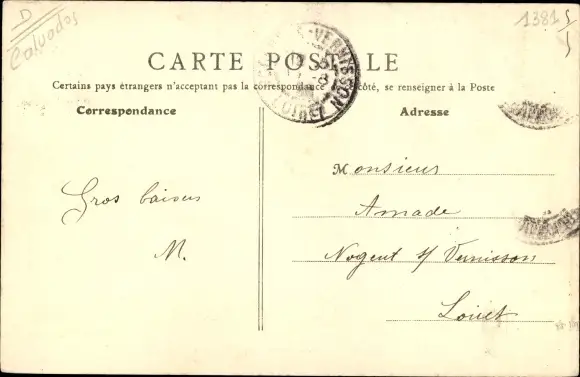 D
Calvados
1381
CARTE POSTALE
Certains pays étrangers n'acceptant pas la correspondance côté, se renseigner à la Poste
Correspondance
Adresse
Gros baisers
M.
Monsieur
Amade
Nogent s/ Vernisson
Loiret
VERNISSON
LOIRET